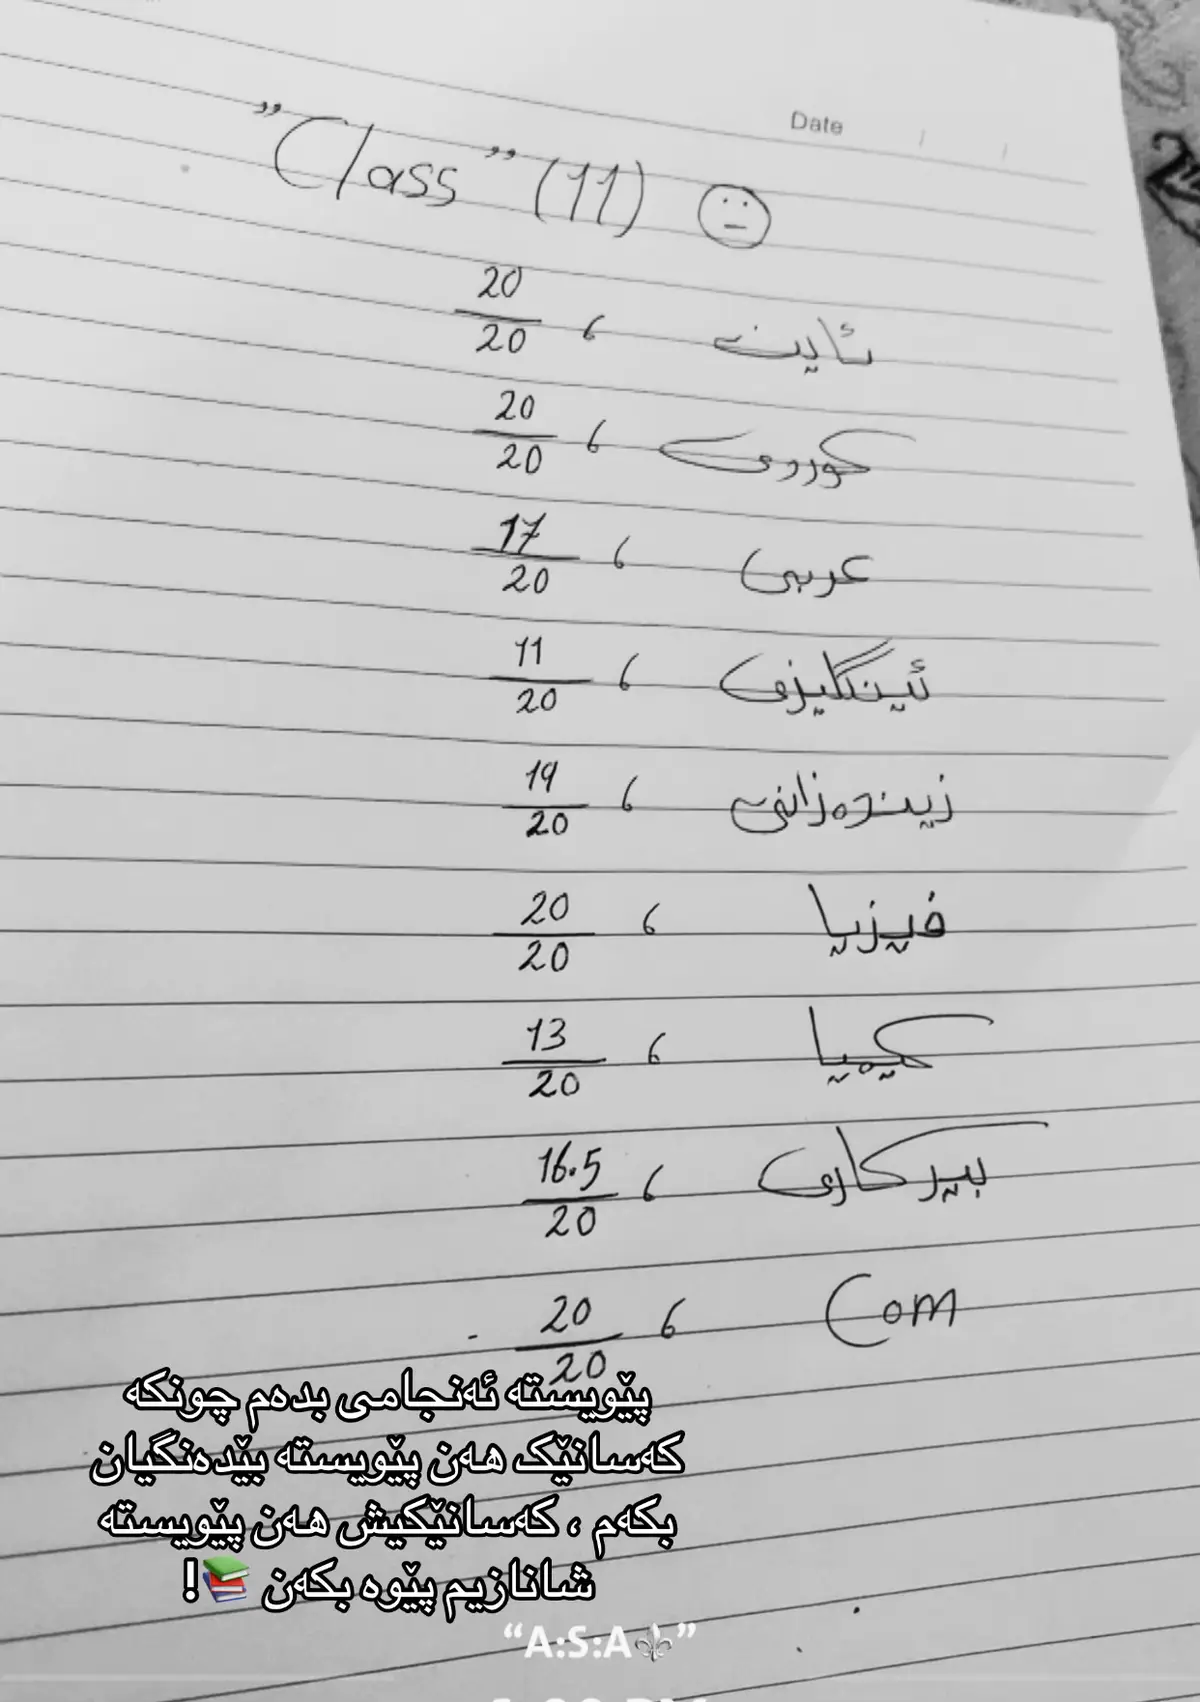 Date / /
"Class" (11)
ئاین ، 20/20
کوردی ، 20/20
عربی ، 17/20
ئینگلیزی ، 11/20
زیندەزانی ، 19/20
فیزیا ، 20/20
کیمیا ، 13/20
بیرکاری ، 16.5/20
Com ، 20/20
پێویستە ئەنجامی بدەم چونکە
کەسانێک هەن پێویستە بێدەنگیان
بکەم ، کەسانێکیش هەن پێویستە
شانازیم پێوە بکەن 📚!
“A:S:A⚜”